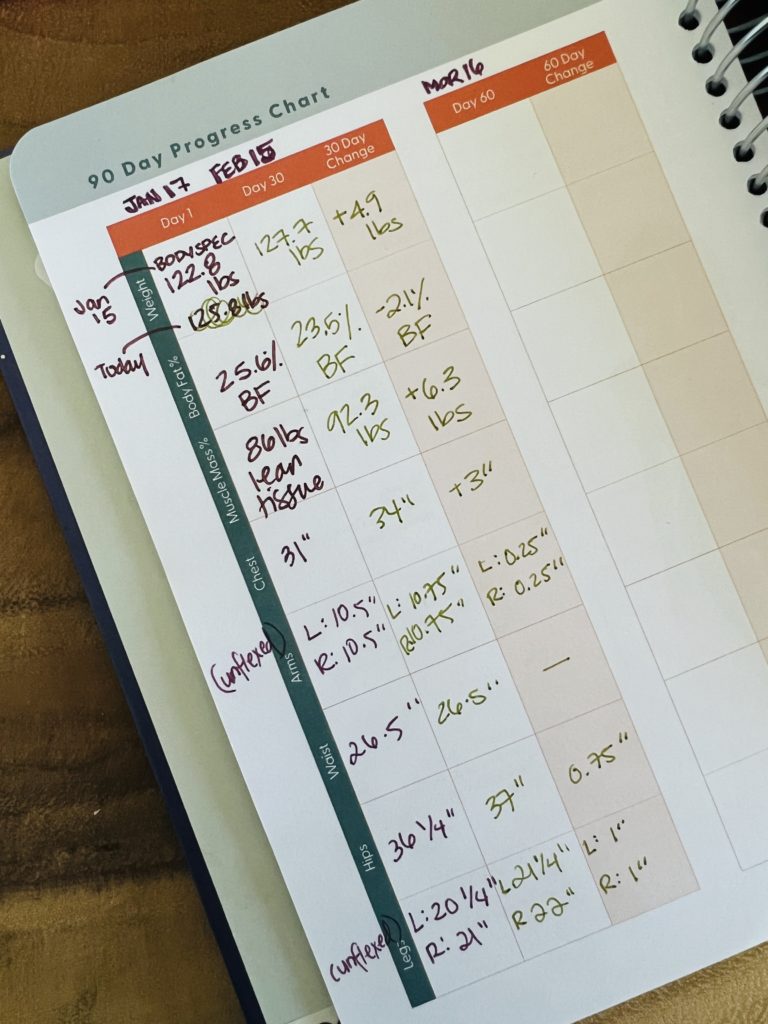 90 Day Progress Chart
JAN 17 FEB 15 MAR 16
Day 1 Day 30 30 Day Change Day 60 60 Day Change
Jan 15
Today
Weight
BODYSPEC
122.8
lbs
125.8 lbs
127.7
lbs
+4.9
lbs
Body Fat %
25.6%
BF
23.5%
BF
-2.1%
BF
Muscle Mass %
86 lbs
lean
tissue
92.3
lbs
+6.3
lbs
Chest
31"
34"
+3"
(unflexed)
Arms
L: 10.5"
R: 10.5"
L: 10.75"
R 10.75"
L: 0.25"
R: 0.25"
Waist
26.5"
26.5"
—
Hips
36 1/4"
37"
0.75"
(unflexed)
Legs
L: 20 1/4"
R: 21"
L 21 1/4"
R 22"
L: 1"
R: 1"